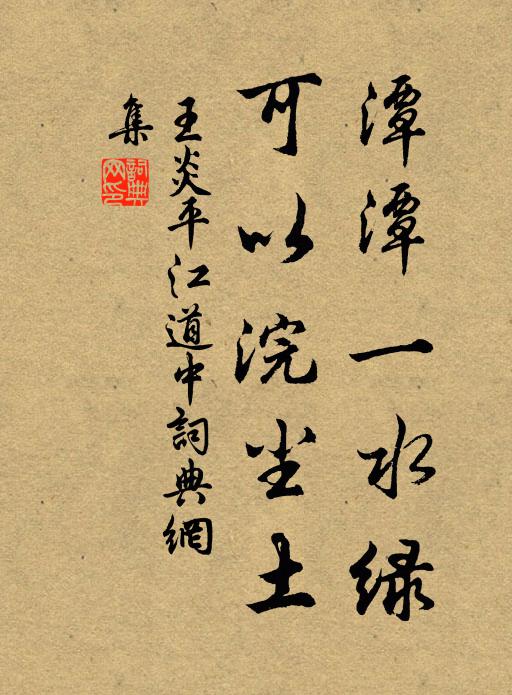 潭潭一水绿
可以浣尘土
王炎平江道中詞典網
集
詞典
网印